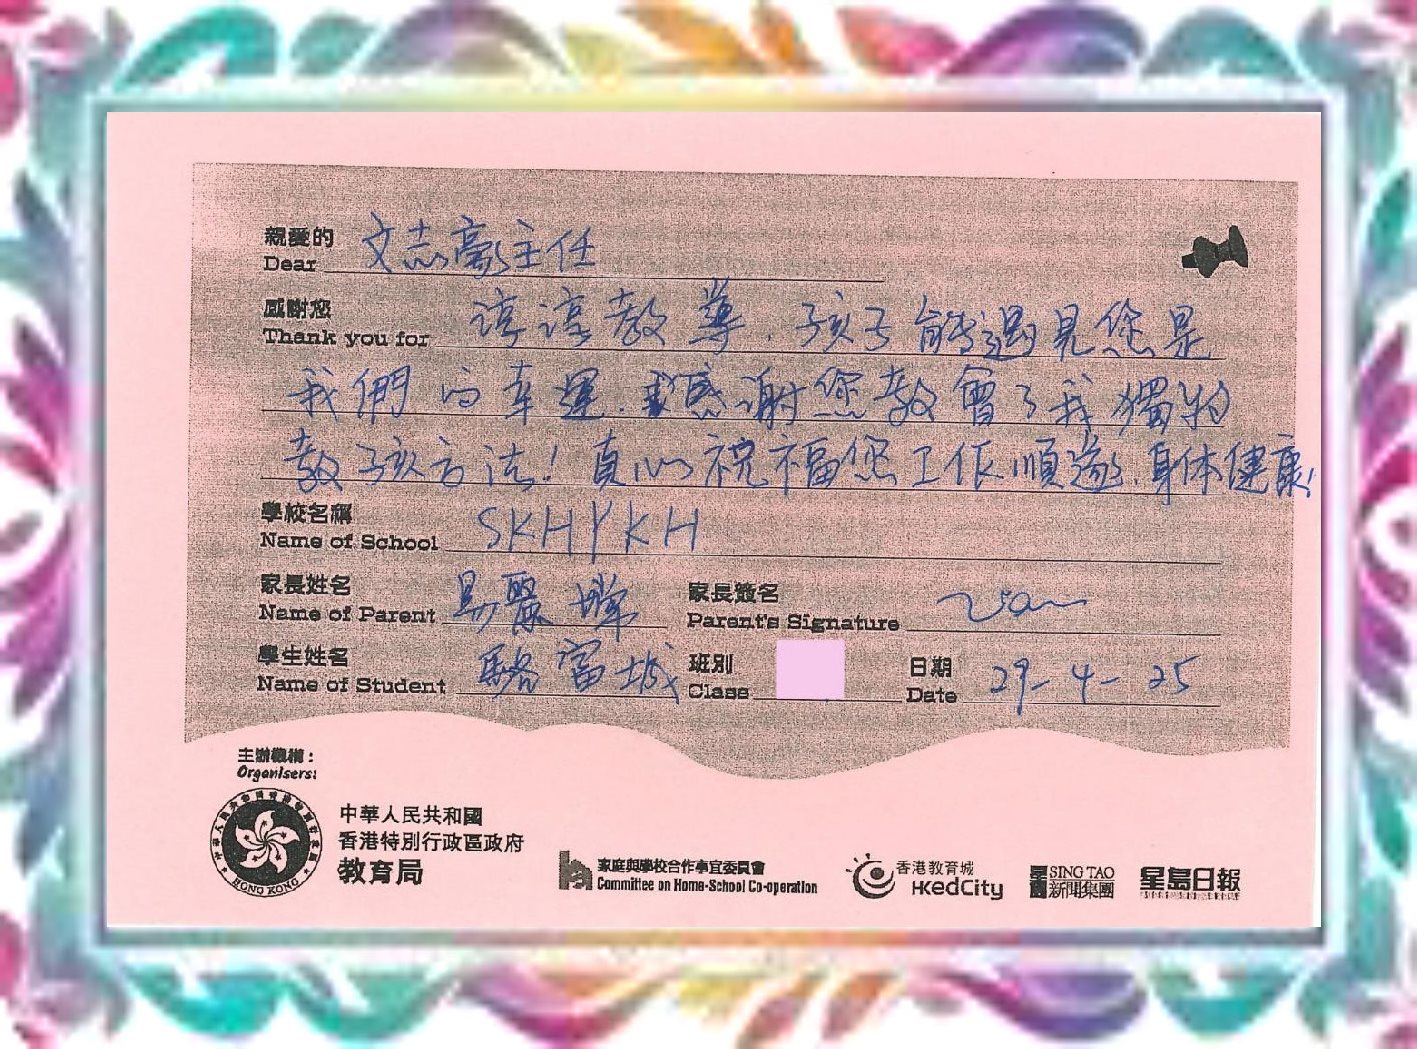 親愛的 文志豪主任
Dear
感謝您 諄諄教導．孩子能遇見您是
Thank you for
我們的幸運．感謝您教會了我獨的
教孩方法！真心祝福您工作順遂．身体健康！
學校名稱 SKHYKH
Name of School
家長姓名 家長簽名
Name of Parent Parent's Signature
學生姓名 駱富城 班別 日期 29-4-25
Name of Student Class Date
主辦機構：
Organisers:
中華人民共和國
香港特別行政區政府
教育局
HONG KONG
家庭與學校合作事宜委員會
Committee on Home-School Co-operation
香港教育城
HKedCity
SING TAO
新聞集團
星島日報